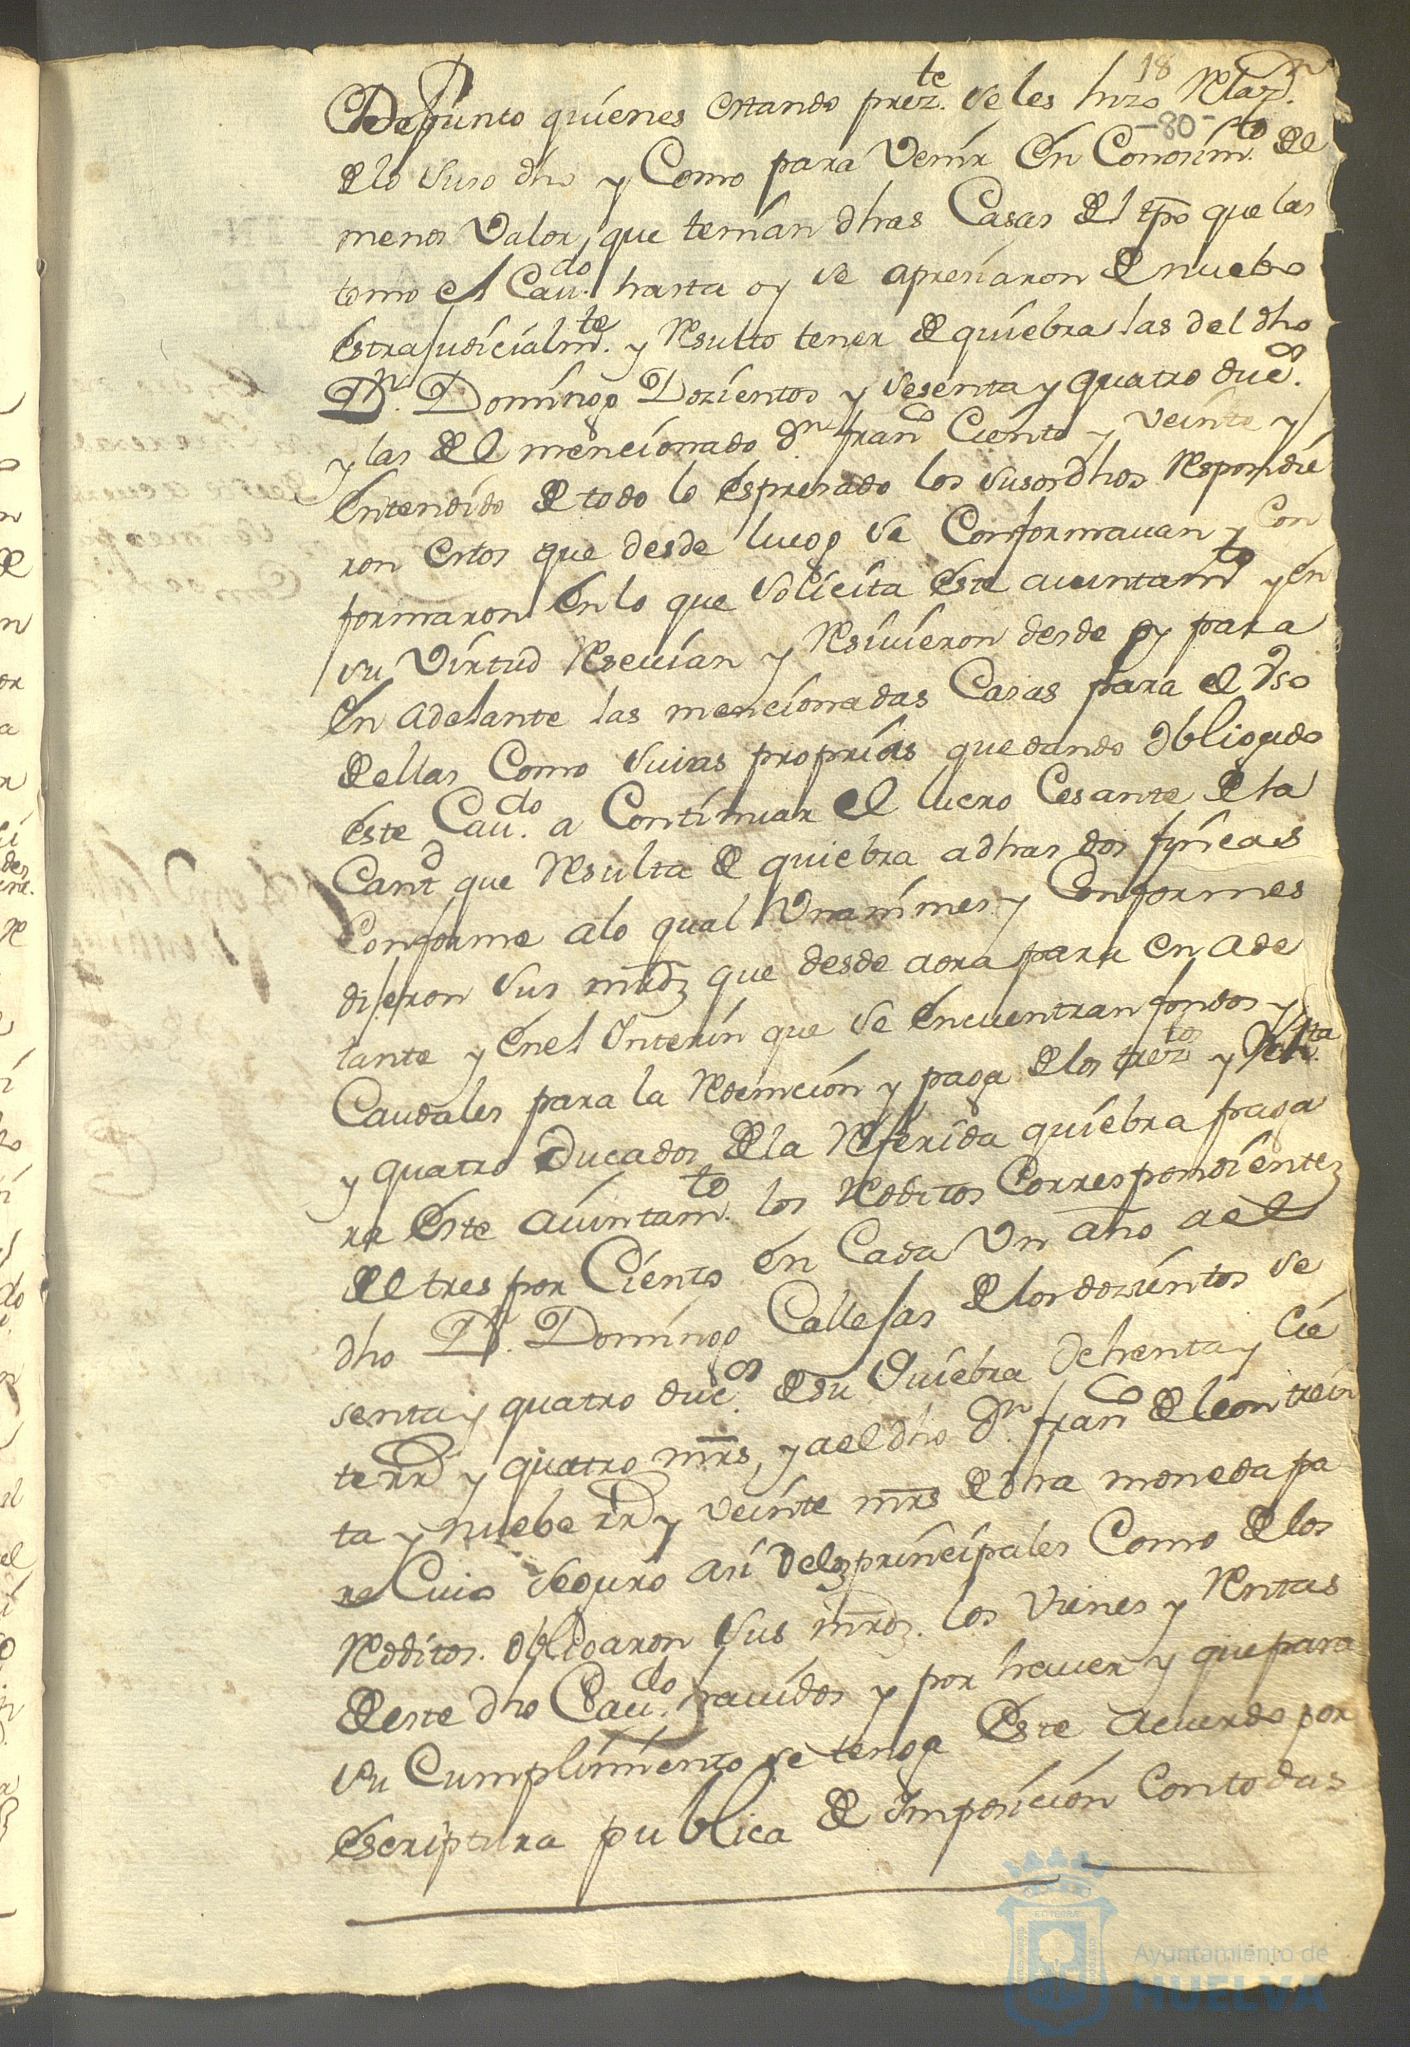 18
-80-
Depunto quienes estando prez.te se les hizo Relaz.n
de lo suso dho y Como para Venir En Conosim.to del
menos Valor, que tenian dhas Casas del tpo que las
tomo el Cau.do hasta oy se apresiaron de nuebo
estrajudicialm.te y Resulto tener de quiebra las del dho
D.n Domingo Dozientos y sesenta y quatro duc.s
y las del mencionado d.n fran.co Ciento y veinte y
Entendido de todo lo espresado los susosdhos Respondie
ron estos que desde luego se Conformauan y Con
formaron En lo que solicita este auintam.to y en
su Virtud Reseuian y Resiuieron desde oy para
En adelante las mencionadas Casas para el Uso
de ellas Como suias proprias quedando obligado
este Cau.do a Continuar el lucro Cesante de la
Cant.d que Resulta de quiebra a dhas dos fincas
Conforme a lo qual Unanimes y Conformes
dijeron sus mrdz que desde aora para en ade
lante y en el Interin que se encuentran fondos y
Caudales para la Redemcion y paga de los trez.tos y
y quatro Ducados de la Referida quiebra paga
ra Este auintam.to los Reditos Correspondientes
del tres por Ciento en Cada Un año a el
dho D.n Domingo Callejas de los dozientos se
senta y quatro duc.os de su Quiebra ochenta y Sie
te rr.s y quatro mrs, y a el dho d.n fran.co de leon trein
ta y nuebe rr.s y veinte mrs de dha moneda pa
ra Cuio seguro asi de los principales Como de los
Reditos. obligaron sus mrdz. los Vienes y Rentas
de este dho Cau.do hauidos y por hauer y que para
su Cumplimiento se tenga Este acuerdo por
escriptura publica de Imposicion con todas
Ayuntamiento de
HUELVA